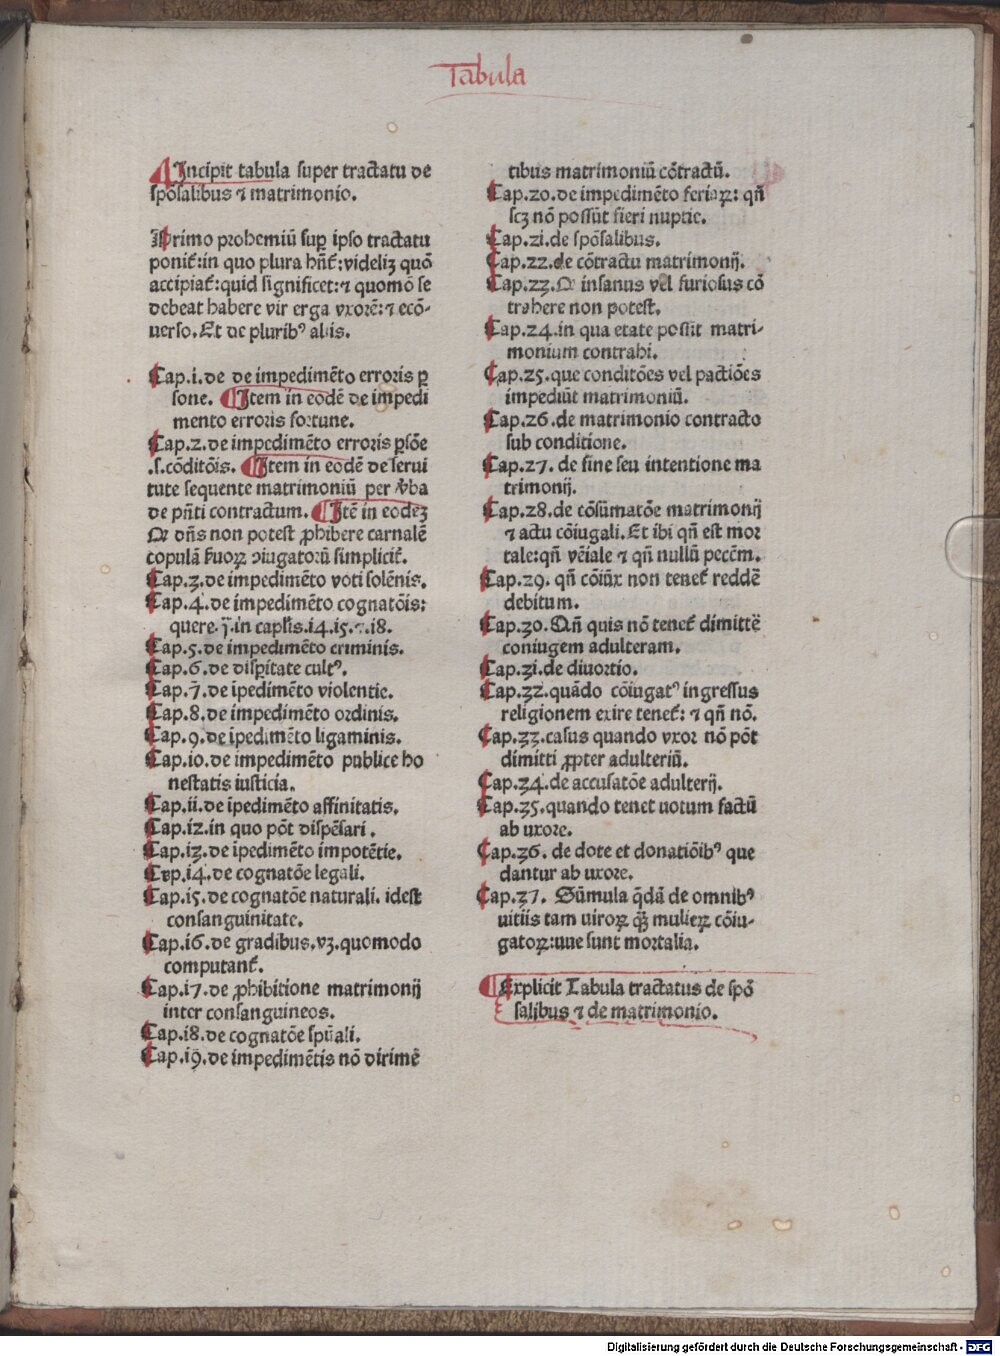 Tabula
Incipit tabula super tractatu de
spōsalibus ⁊ matrimonio.
Primo prohemiū suꝑ ipso tractatu
ponit᷑: in quo plura hñt᷑: videlicꝫ quō
accipiat᷑: quid significet: ⁊ quomō se
debeat habere vir erga vxorē: ⁊ ecō-
uerso. Et de pluribꝰ aliis.
Cap.i. de de impedimēto erroris ꝑ
sone. Item in eodē de impedi
mento erroris fortune.
Cap.2. de impedimēto erroris ꝑsōe
.s. cōditōis. Item in eodē de serui
tute sequente matrimoniū per v̄ba
de pñti contractum. Itē in eodeꝫ
Qꝛ dñs non potest ꝓhibere carnalē
copulā ẜuoꝝ ↄiugatorū simplicit᷑.
Cap.3. de impedimēto voti solēnis.
Cap.4. de impedimēto cognatōis:
quere. j̄. in caplīs. i4. i5. ⁊. i8.
Cap.5. de impedimēto criminis.
Cap.6. de disꝑitate cultꝰ.
Cap.7. de īpedimēto violentie.
Cap.8. de impedimēto ordinis.
Cap.9. de īpedimēto ligaminis.
Cap.io. de impedimēto publice ho
nestatis iusticia.
Cap.ii. de īpedimēto affinitatis.
Cap.i2. in quo pōt dispēsari.
Cap.i3. de īpedimēto impotētie.
Cap.i4. de cognatōe legali.
Cap.i5. de cognatōe naturali. idest
consanguinitate.
Cap.i6. de gradibus. vꝫ. quomodo
computant᷑.
Cap.i7. de ꝓhibitione matrimonij
inter consanguineos.
Cap.i8. de cognatōe spūali.
Cap.i9. de impedimētis nō dirimē
tibus matrimoniū cōtractū.
Cap.20. de impedimēto feriaꝝ: qñ
scꝫ nō possūt fieri nuptie.
Cap.2i. de spōsalibus.
Cap.22. de cōtractu matrimonij.
Cap.23. Qꝛ insanus vel furiosus cō
trahere non potest.
Cap.24. in qua etate possit matri-
monium contrahi.
Cap.25. que conditōes vel pactiōes
impediūt matrimoniū.
Cap.26. de matrimonio contracto
sub conditione.
Cap.27. de fine seu intentione ma
trimonij.
Cap.28. de cōsūmatōe matrimonij
⁊ actu cōiugali. Et ibi qñ est mor
tale: qñ vēiale ⁊ qñ nullū pecēm.
Cap.29. qñ cōiūx non tenet᷑ reddē
debitum.
Cap.30. Qñ quis nō tenet᷑ dimittē
coniugem adulteram.
Cap.3i. de diuortio.
Cap.32. quādo cōiugatꝰ ingressus
religionem exire tenet᷑: ⁊ qñ nō.
Cap.33. casus quando vxor nō pōt
dimitti ꝓpter adulteriū.
Cap.34. de accusatōe adulterij.
Cap.35. quando tenet uotum factū
ab uxore.
Cap.36. de dote et donatiōibꝰ que
dantur ab uxore.
Cap.37. Sūmula q̄dā de omnibꝰ
uitiis tam uiroꝝ qꝫ̄ mulieꝝ cōiu-
gatoꝝ: uue sunt mortalia.
Explicit Tabula tractatus de spō
salibus ⁊ de matrimonio.
Digitalisierung gefördert durch die Deutsche Forschungsgemeinschaft - DFG